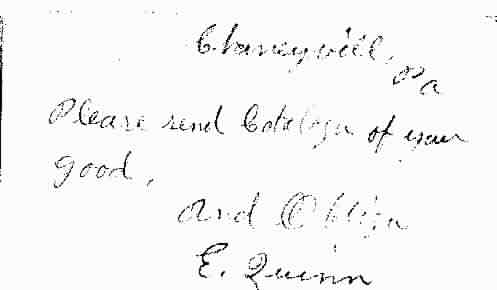 Chaneyville, Pa
Please send Catalogu of your
good,
and Oblige
E. Quinn